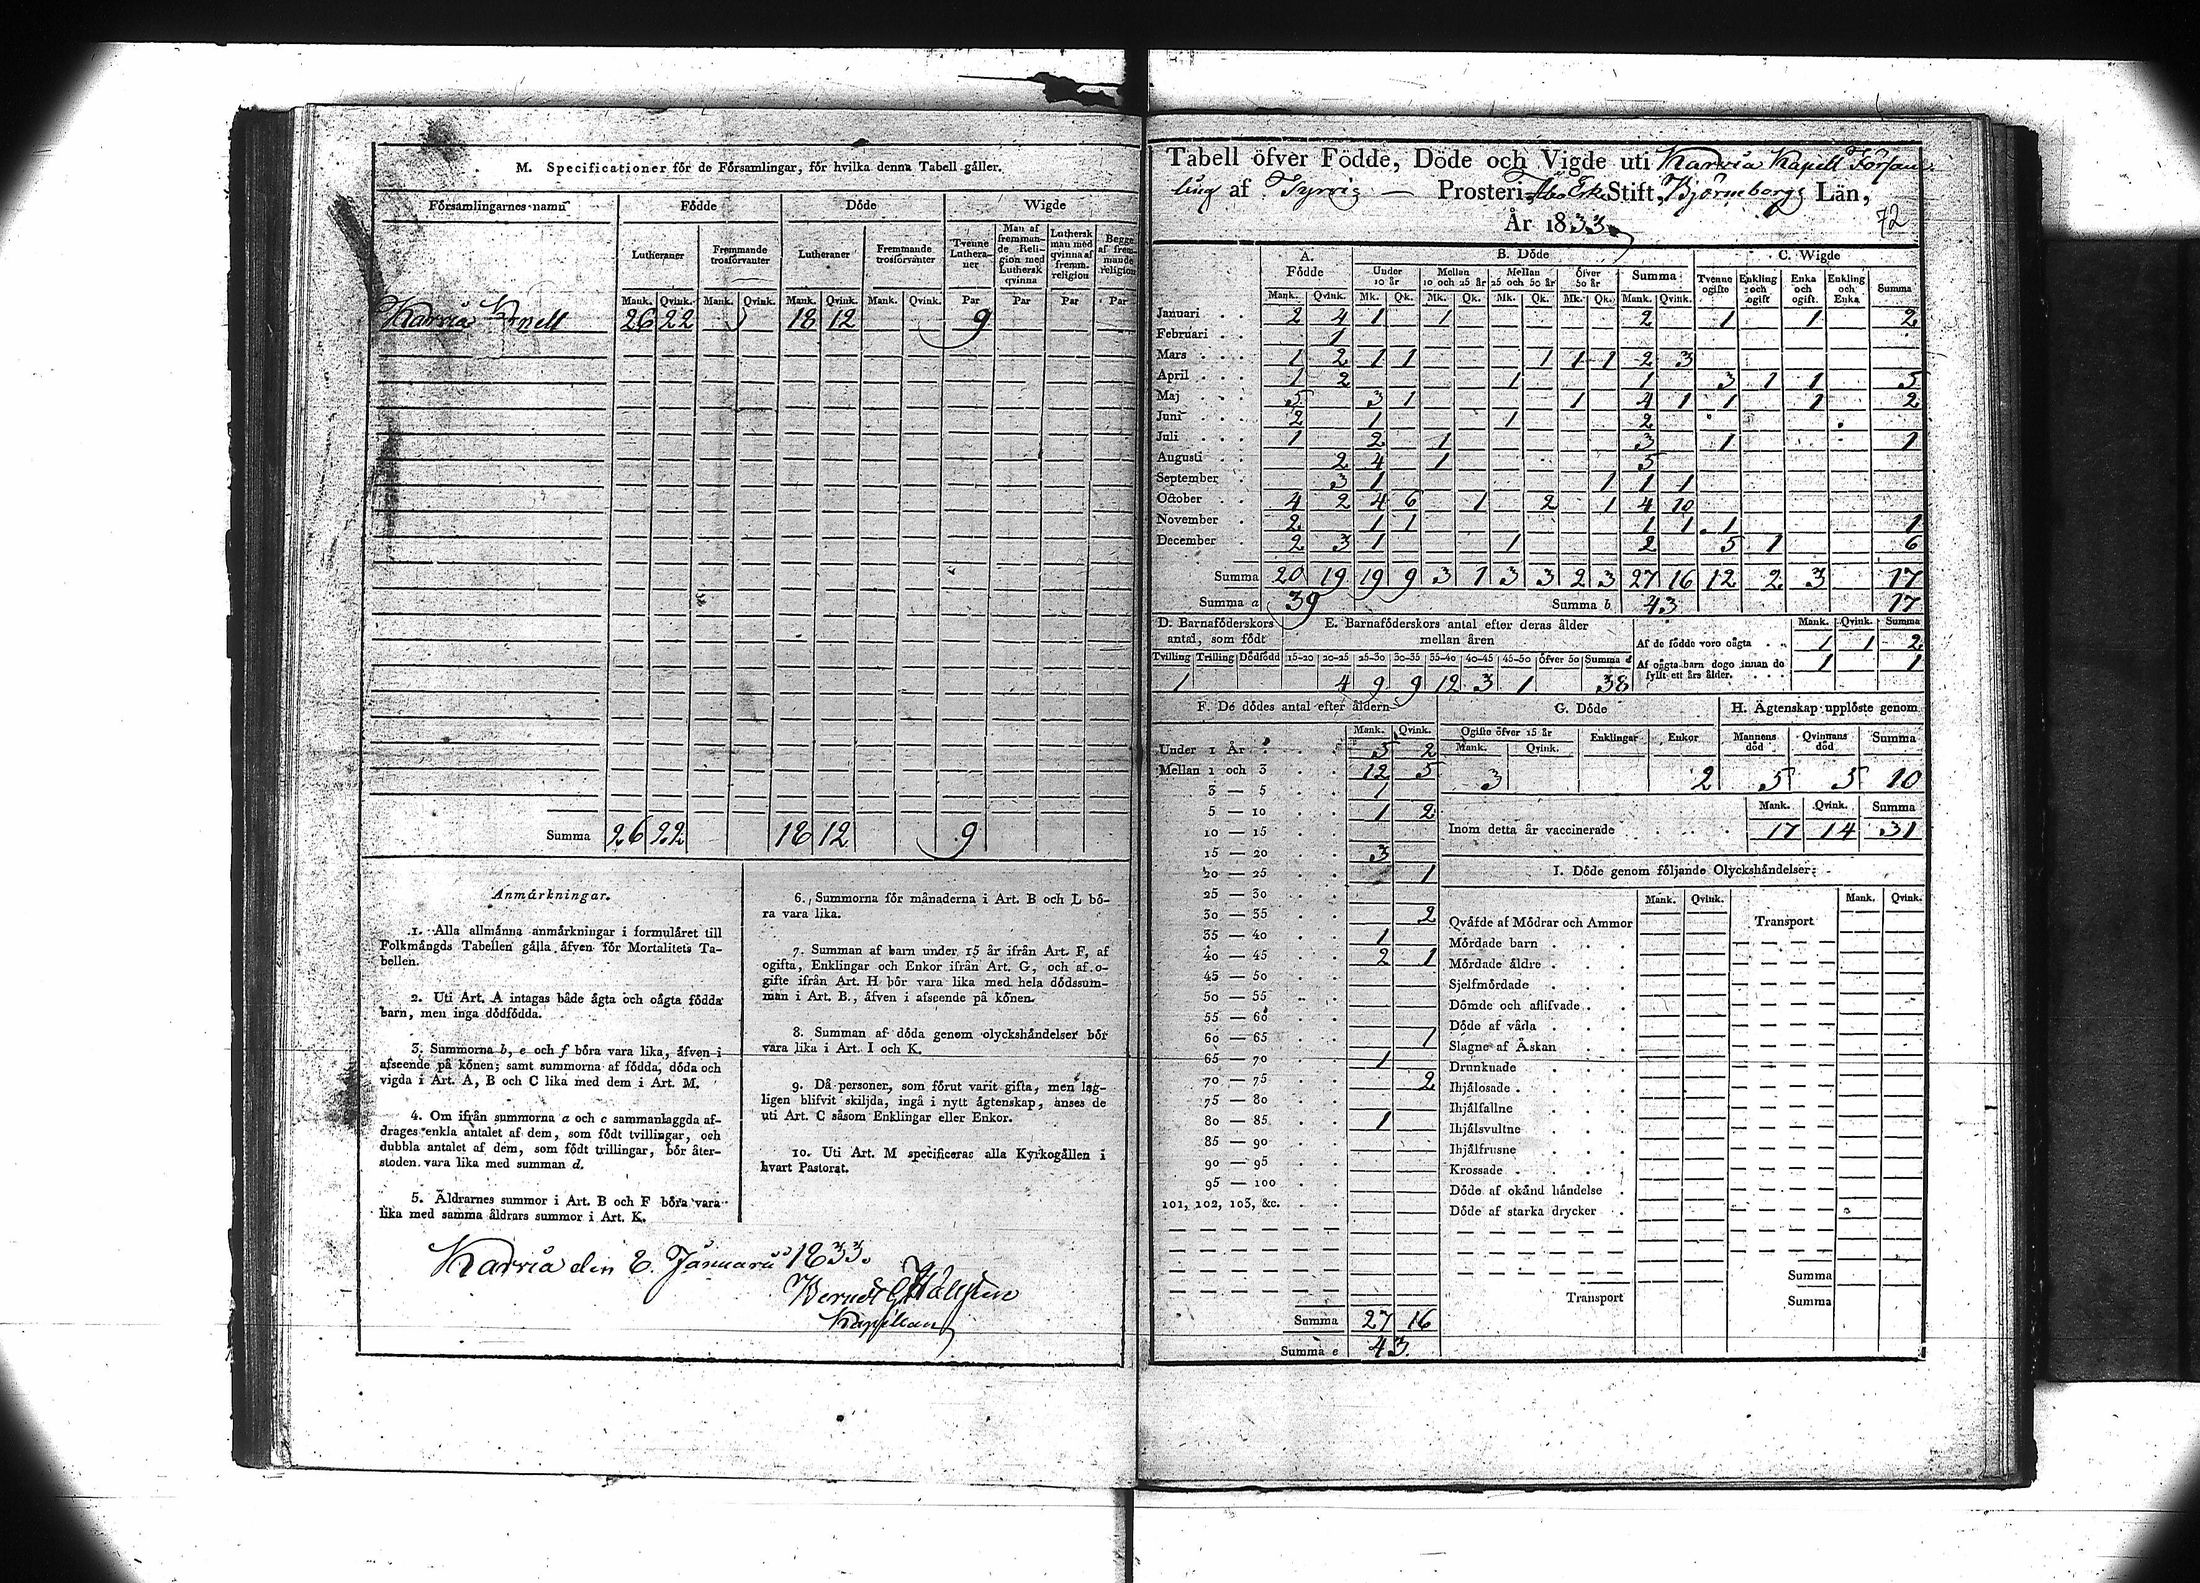 M. Specificationer för de Församlingar, för hvilka denna Tabell gäller.
Församlingarnes namn Födde Döde Wigde
Lutheraner Fremmande trosförvanter Lutheraner Fremmande trosförvanter Tvenne Lutheraner Man af fremmande Religion med Luthersk qvinna Luthersk man med qvinna af fremm. religion Begge af fremmande religion
Mank. Qvink. Mank. Qvink. Mank. Qvink. Mank. Qvink. Par Par Par Par
Karvia Kapell 26 22 18 12 9
Summa 26 22 18 12 9
Anmärkningar.
1. Alla allmänna anmärkningar i formuläret till
Folkmängds Tabellen gälla äfven för Mortalitets Ta-
bellen.
2. Uti Art. A intagas både ägta och oägta födda
barn, men inga dödfödda.
3. Summorna b, e och f böra vara lika, äfven i
afseende på könen; samt summorna af födda, döda och
vigda i Art. A, B och C lika med dem i Art. M.
4. Om ifrån summorna a och c sammanlaggda af-
drages enkla antalet af dem, som födt tvillingar, och
dubbla antalet af dem, som födt trillingar, bör åter-
stoden vara lika med summan d.
5. Åldrarnes summor i Art. B och F böra vara
lika med samma åldrars summor i Art. K.
6. Summorna för månaderna i Art. B och L bö-
ra vara lika.
7. Summan af barn under 15 år ifrån Art. F, af
ogifta, Enklingar och Enkor ifrån Art. G, och af o-
gifte ifrån Art. H bör vara lika med hela dödssum-
man i Art. B., äfven i afseende på könen.
8. Summan af döda genom olyckshändelser bör
vara lika i Art. I och K.
9. Då personer, som förut varit gifta, men lag-
ligen blifvit skiljda, ingå i nytt ägtenskap, anses de
uti Art. C såsom Enklingar eller Enkor.
10. Uti Art. M specificeras alla Kyrkogällen i
hvart Pastorat.
Karvia den 8. Januarii 1833.
Kapellan
Tabell öfver Födde, Döde och Vigde uti Karvia Kapell Försam
ling af Tyrvis Prosteri, Åbo Erke Stift, Björneborgs Län,
År 1833.
72
A. Födde B. Döde C. Wigde
Under 10 år Mellan 10 och 25 år Mellan 25 och 50 år Öfver 50 år Summa Tvenne ogifte Enkling och ogift Enka och ogift. Enkling och Enka Summa
Mank. Qvink. Mk. Qk. Mk. Qk. Mk. Qk. Mk. Qk. Mank. Qvink.
Januari 2 4 1 1 2 1 1 2
Februari 1
Mars 1 2 1 1 1 1 1 2 3
April 1 2 1 1 3 1 1 5
Maj 5 3 1 1 4 1 1 1 2
Juni 2 1 1 2
Juli 1 2 1 3 1 1
Augusti 2 4 1 5
September 3 1 1 1 1
October 4 2 4 6 1 2 1 4 10
November 2 1 1 1 1 1 1
December 2 3 1 1 2 5 1 6
Summa 20 19 19 9 3 1 3 3 2 3 27 16 12 2 3 17
Summa a 39 Summa b 43 17
D. Barnaföderskors antal, som födt
E. Barnaföderskors antal efter deras ålder mellan åren
Mank. Qvink. Summa
Tvilling Trilling Dödfödd 15-20 20-25 25-30 30-35 35-40 40-45 45-50 Öfver 50 Summa d
1 4 9 9 12 3 1 38
Af de födde voro oägta 1 1 2
Af oägta barn dogo innan de fyllt ett års ålder. 1 1
F. De dödes antal efter åldern
Mank. Qvink.
Under 1 År 5 2
Mellan 1 och 3 12 5
3 — 5 1
5 — 10 1 2
10 — 15
15 — 20 3
20 — 25 1
25 — 30
30 — 35 2
35 — 40 1
40 — 45 2 1
45 — 50
50 — 55
55 — 60
60 — 65 1
65 — 70 1
70 — 75 2
75 — 80
80 — 85 1
85 — 90
90 — 95
95 — 100
101, 102, 103, &c.
Summa 27 16
Summa e 43.
G. Döde
Ogifte öfver 15 år Enklingar Enkor
Mank. Qvink.
3 2
H. Ägtenskap upplöste genom
Mannens död Qvinnans död Summa
5 5 10
Mank. Qvink. Summa
Inom detta år vaccinerade 17 14 31
I. Döde genom följande Olyckshändelser:
Mank. Qvink. Mank. Qvink.
Qväfde af Mödrar och Ammor Transport
Mördade barn
Mördade äldre
Sjelfmördade
Dömde och aflifvade
Döde af våda
Slagne af Åskan
Drunknade
Ihjälosade
Ihjälfallne
Ihjälsvultne
Ihjälfrusne
Krossade
Döde af okänd händelse
Döde af starka drycker
Summa
Transport Summa